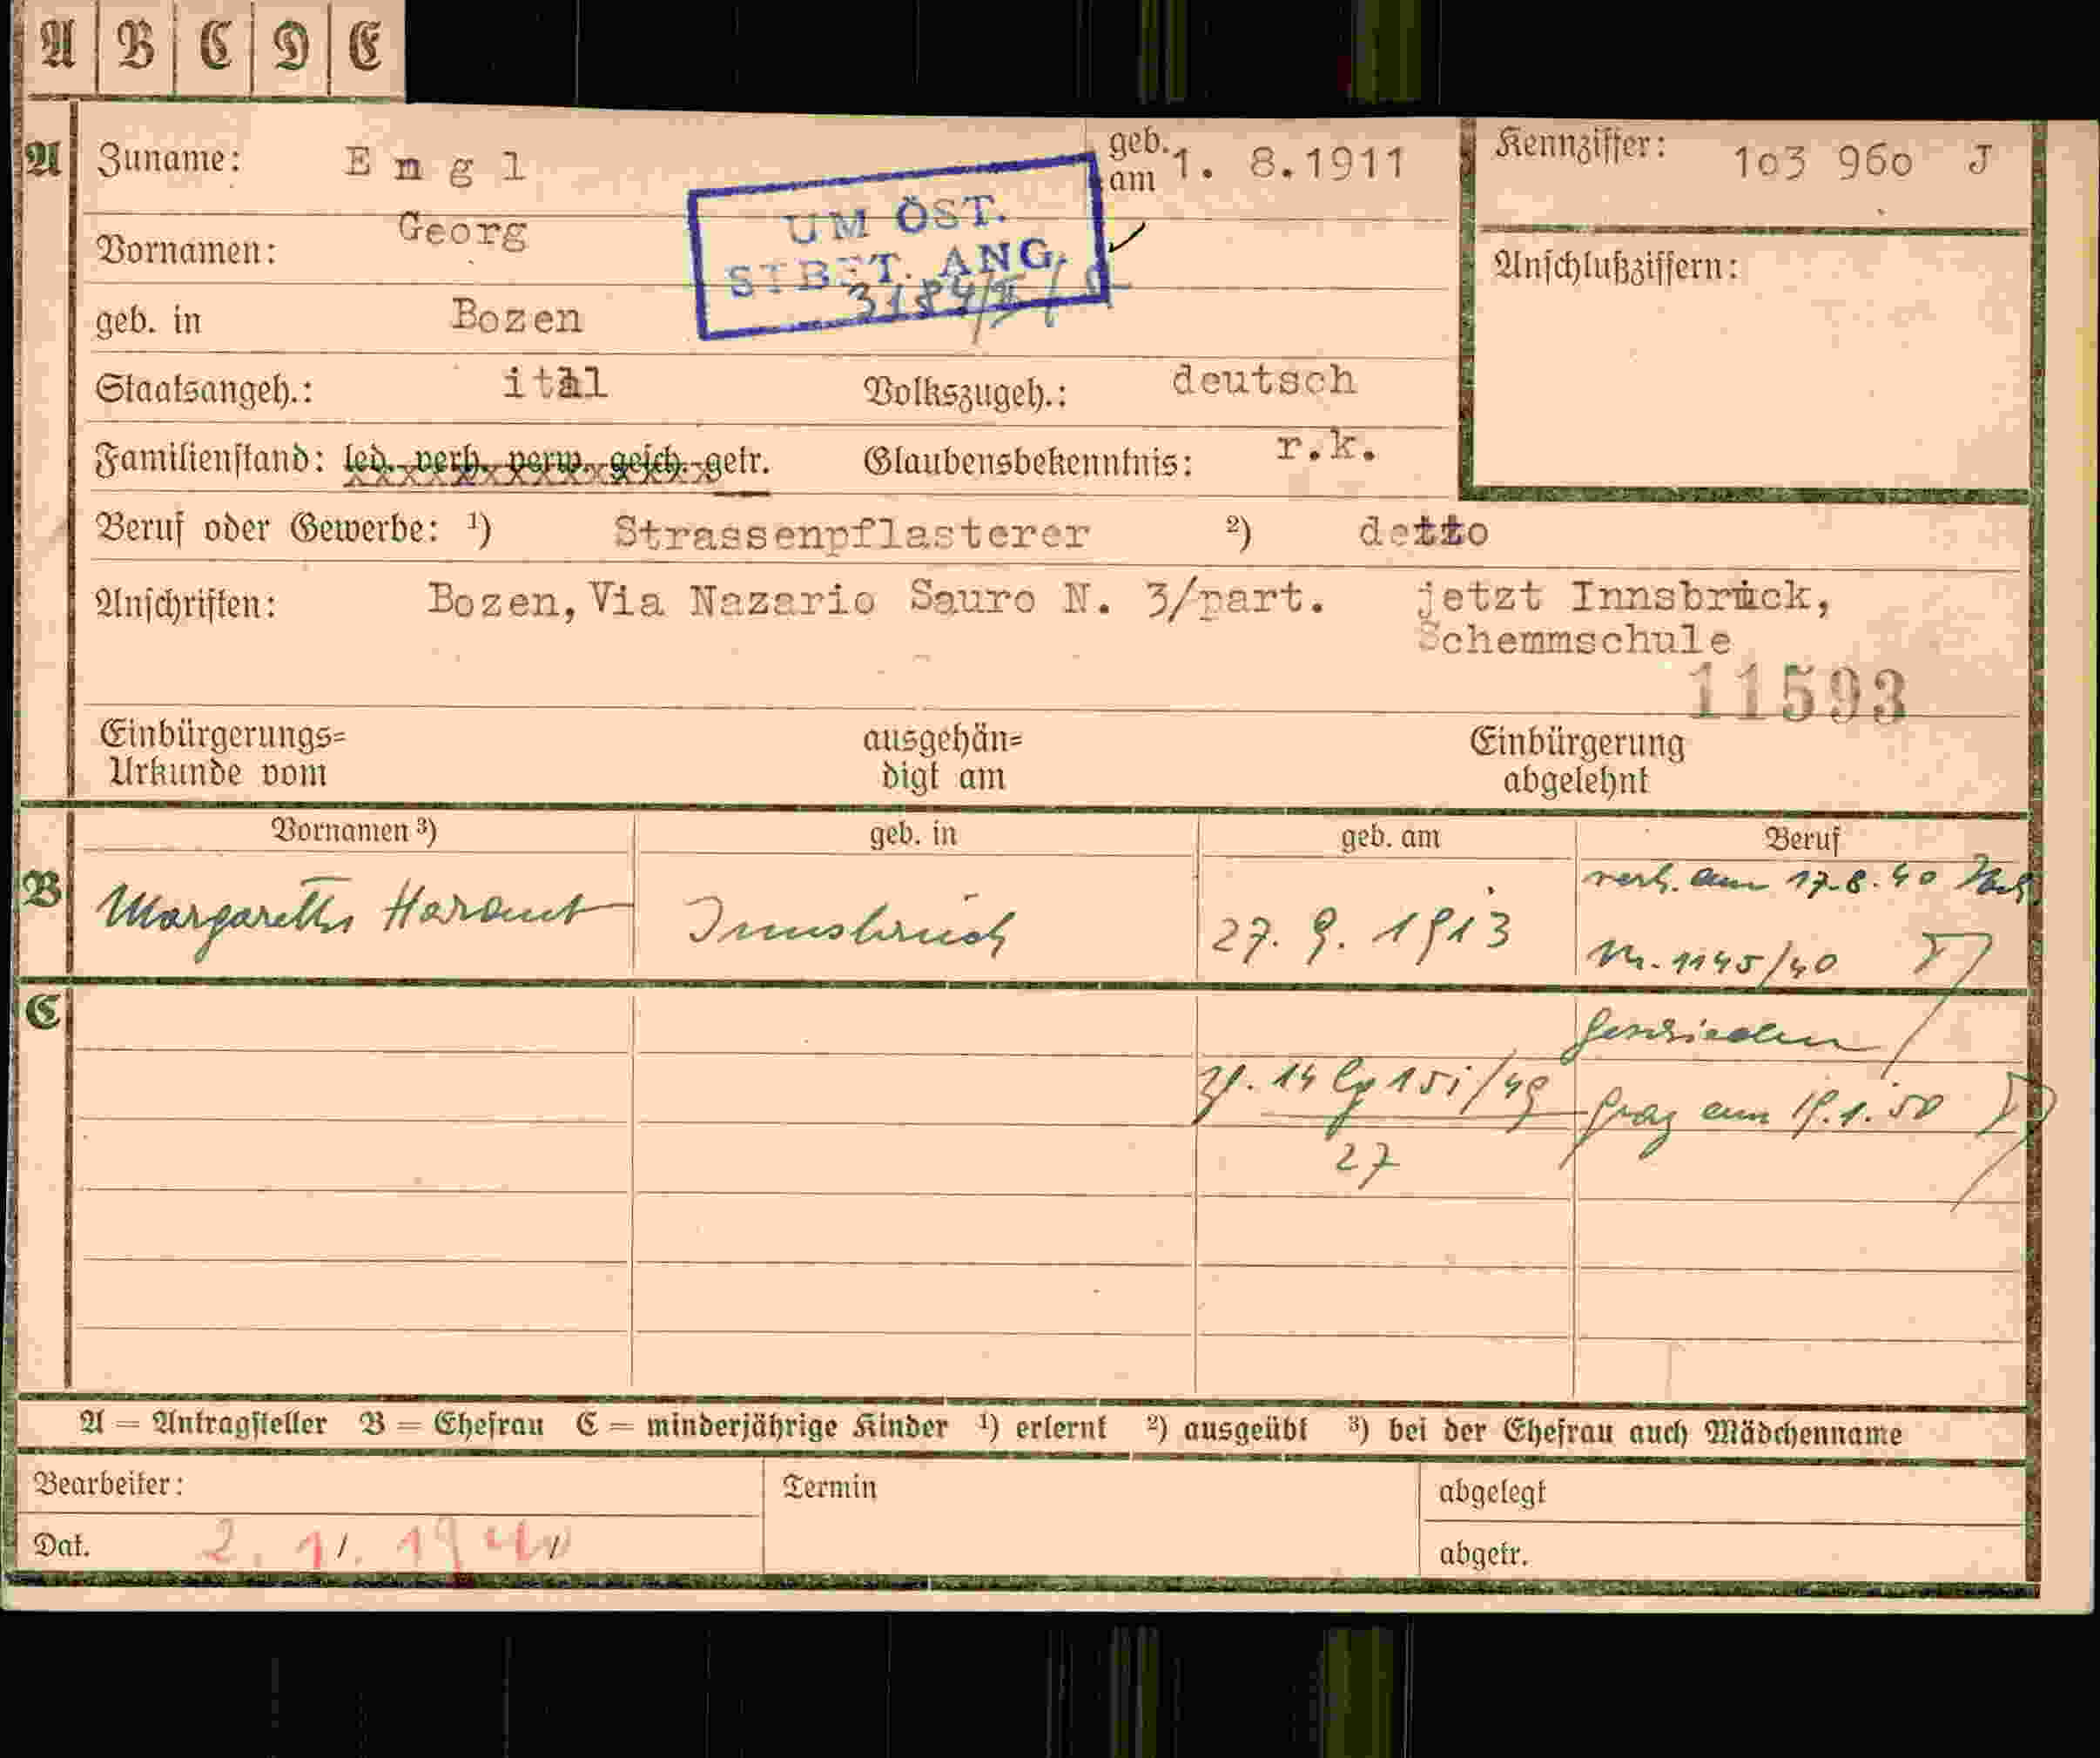 A B C D E
A Zuname: Engl geb. am 1. 8.1911 Kennziffer: 1o3 96o J
UM ÖST.
STBGT. ANG.
Vornamen: Georg
Anschlußziffern:
geb. in Bozen
Staatsangeh.: ital Volkszugeh.: deutsch
Familienstand: led. verh. verw. gesch. getr. Glaubensbekenntnis: r.k.
Beruf oder Gewerbe: ¹) Strassenpflasterer ²) detto
Anschriften: Bozen, Via Nazario Sauro N. 3/part. jetzt Innsbruck,
Schemmschule
11593
Einbürgerungs= ausgehän= Einbürgerung
Urkunde vom digt am abgelehnt
Vornamen ³) geb. in geb. am Beruf
verh. am 17.8.40
B Innsbruck 27. 9. 1913
Nr. 1145/40
C
geschieden
am 19.1.50
27
A = Antragsteller B = Ehefrau C = minderjährige Kinder ¹) erlernt ²) ausgeübt ³) bei der Ehefrau auch Mädchenname
Bearbeiter: Termin abgelegt
Dat. 2. 1. 1940 abgetr.